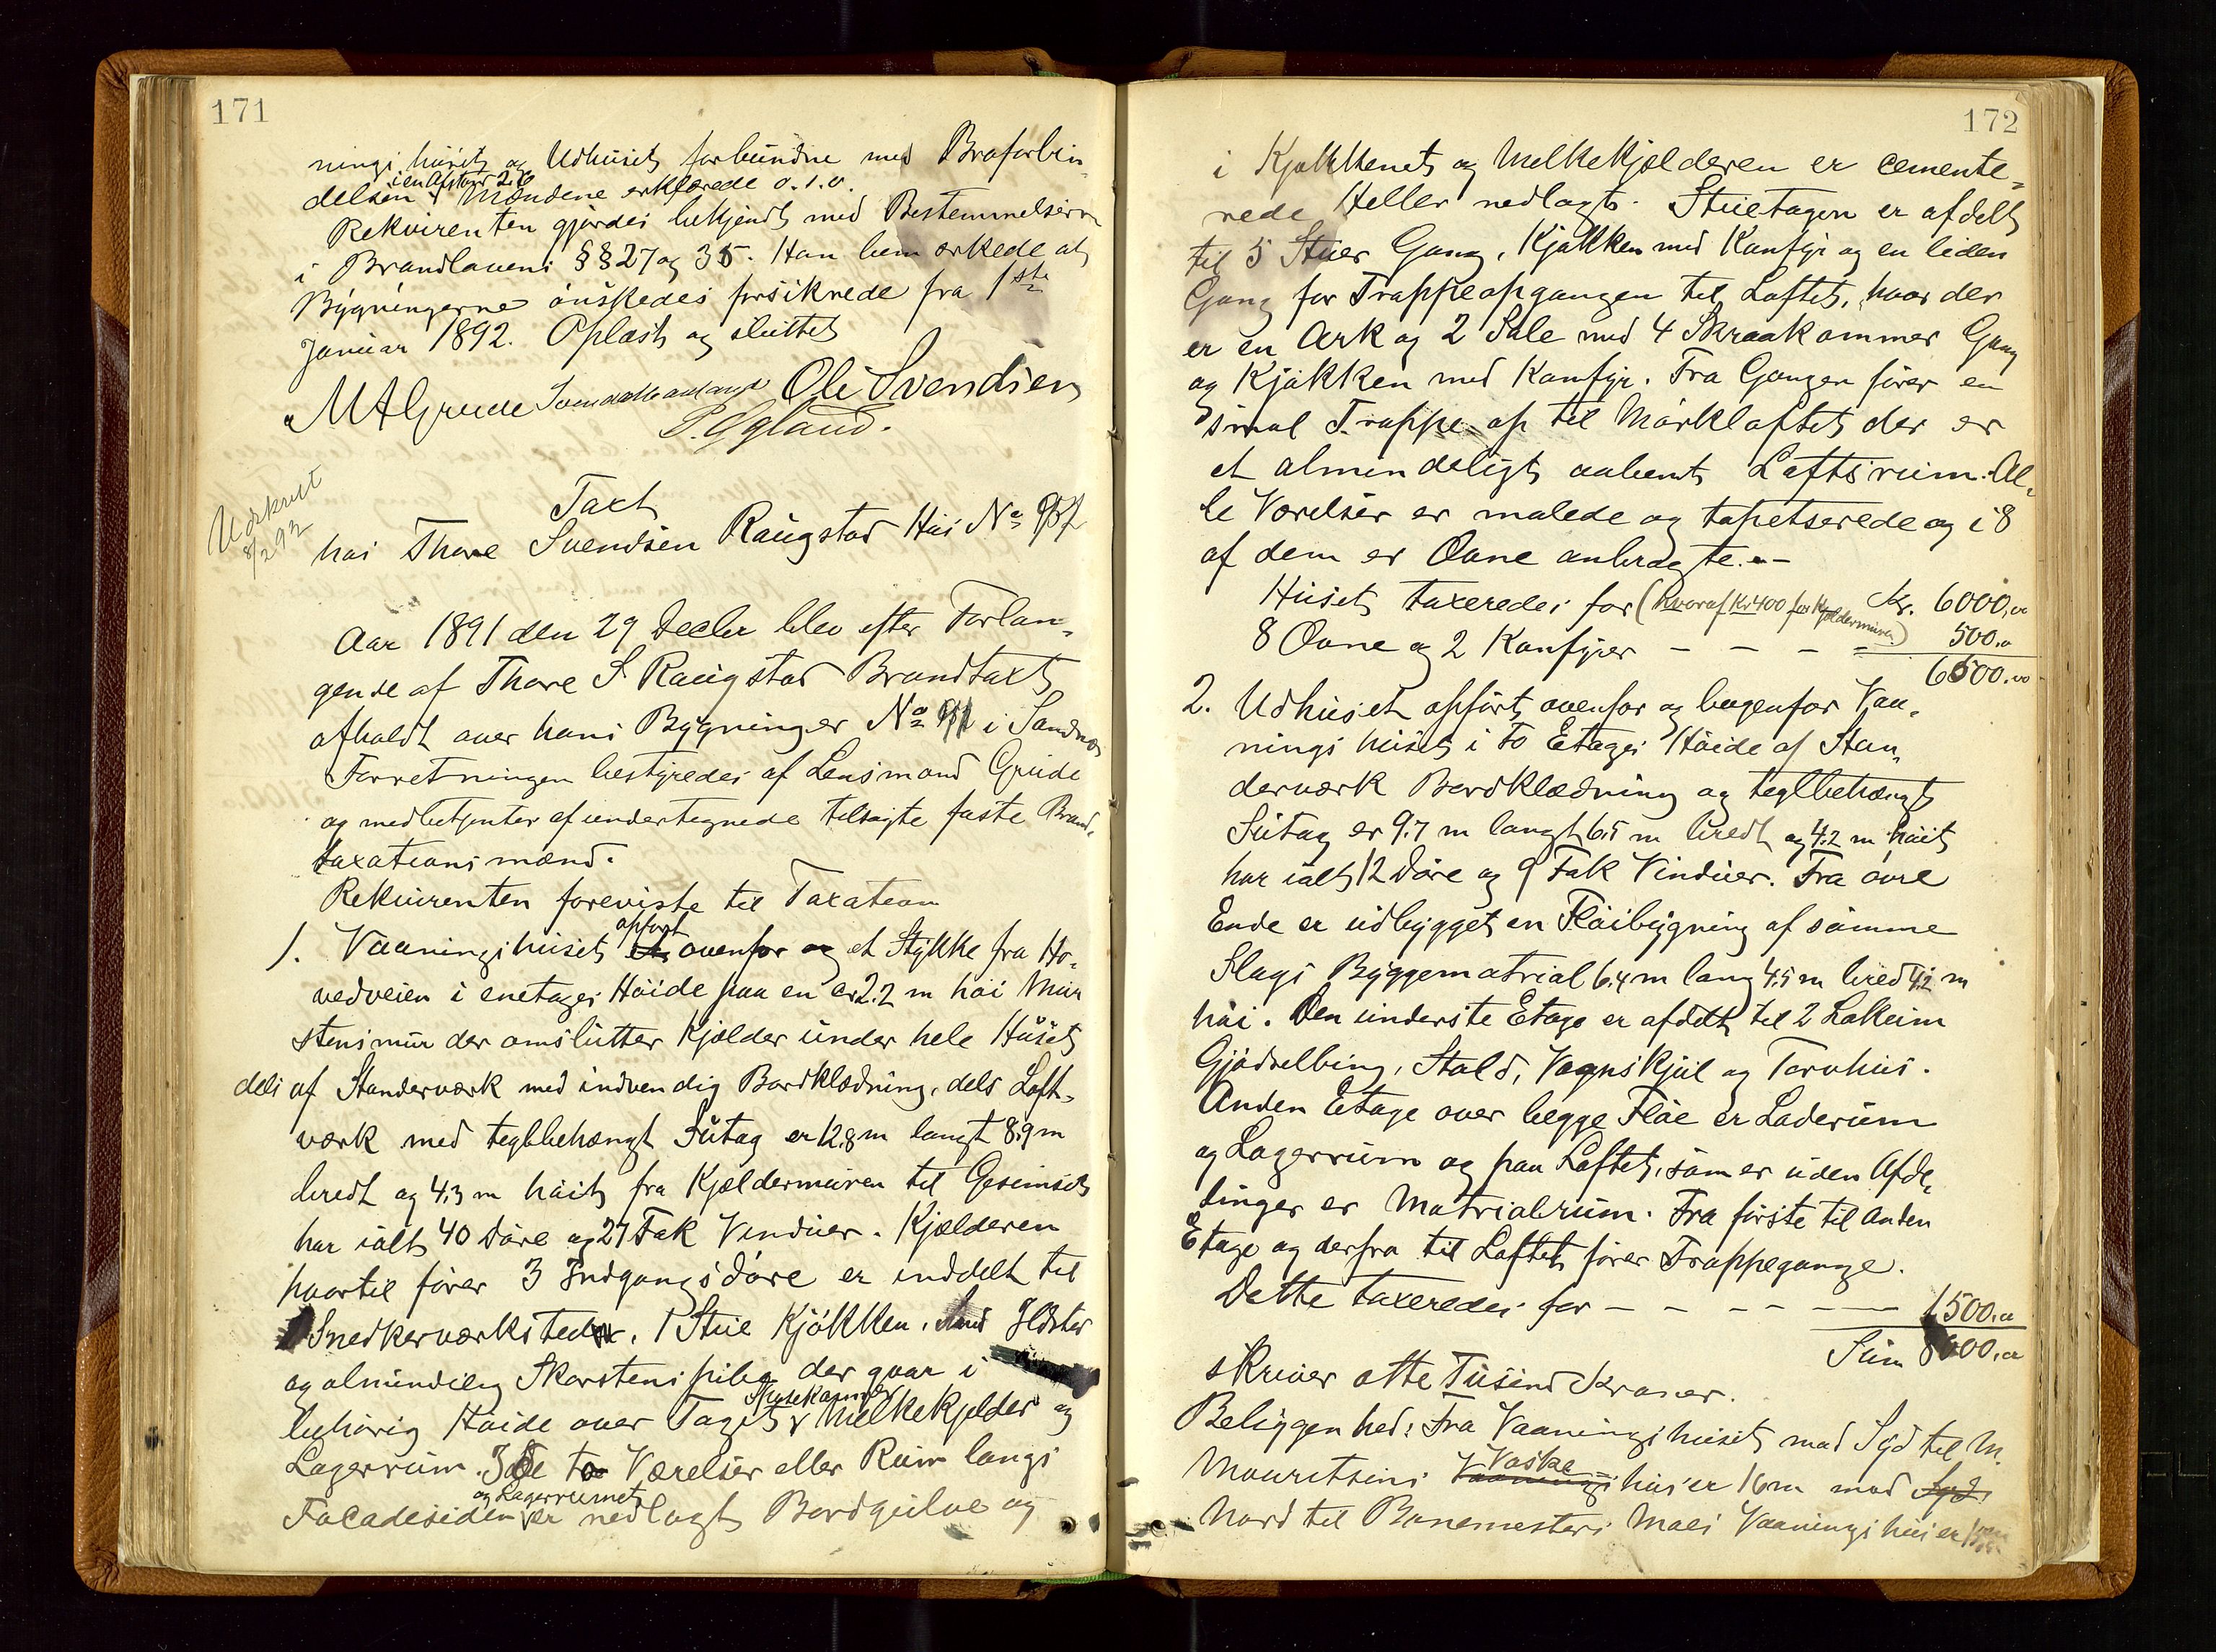 171
ningshuset og Udhuset forbundne med Braforbin-
i en Afstand 2.6
delsen Mændene erklærede o.s.v.
Rekvirenten gjordes bekjendt med Bestemmelserne
i Brandlovens §§ 27 og 35. Han bemærkede at
Bygningerne ønskedes forsikrede fra 1ste
Januar 1892. Oplæst og sluttet
M A Grude Ole Svendsen
P. Ogland.
Udskrevet
8/2 92
Taxt
hos Thore Svendsen Raugstad Hus No
Aar 1891 den 29 Decbr blev efter Forlan-
gende af Thore S Raugstad Brandtaxt
afholdt over hans Bygninger No i Sandnæs
Forretningen bestyredes af Lensmand Grude
og medbetjenter af undertegnede tilsagte faste Brand-
taxationsmænd.
Rekvirenten foreviste til Taxation
opført
1. Vaaningshuset ovenfor og et Stykke fra Ho-
vedveien i enetages Høide paa en 2.2 m høi Mur
stensmur der omslutter Kjælder under hele Huset
dels af Standerværk med indvendig Bordklædning, dels Loft-
værk med teglbehængt Sutag er 12.8 m langt 8.9 m
bredt og 4.3 m høit fra Kjældermuren til Gesimset
har ialt 40 Døre og 27 Fak Vinduer. Kjælderen
hvortil fører 3 Indgangsdøre er inddelt til
Snedkerværksted, 1 Stue Kjøkken, Ildsted
og almindelig Skorstenspibe der gaar i
Spisekammer
behørig Høide over Taget Melkekjelder og
Lagerrum. I de to Værelser eller Rum langs
og Lagerrumet
Facadesiden er nedlagt Bordgulve og
172
i Kjøkkenet og Melkekjælderen er cemente-
rede Heller nedlagt. Stuetagen er afdelt
til 5 Stuer Gang, Kjøkken med Komfyr og en liden
Gang for Trappeopgangen til Loftet, hvor der
er en Ark og 2 Sale med 4 Skraakammer Gang
og Kjøkken med Komfyr. Fra Gangen fører en
smal Trappe op til Mørkloftet der er
et almindeligt aabent Loftsrum. Al-
le Værelser er malede og tapetserede og i 8
af dem er Ovne anbragte. -
Huset taxeredes for (hvoraf Kr 400 for Kjældermuren) Kr. 6000,00
8 Ovne og 2 Komfyrer - - - - 500.00
6500.00
2. Udhuset opført ovenfor og bagenfor Vaa-
ningshuset i to Etages Høide af Stan-
derværk Bordklædning og teglbehængt
Sutag er 9.7 m langt 6.5 m bredt og 4.2 m høit
har ialt 12 Døre og 9 Fak Vinduer. Fra øvre
Ende er udbygget en Fløibygning af samme
Slags Byggematrial 6.4 m lang 4.5 m bred 4.2 m
høi. Den underste Etage er afdelt til 2 Lokeim
Gjødselbing, Stald, Vognskjul og Torvhus.
Anden Etage over begge Fløe er Laderum
og Lagerrum og paa Loftet, som er uden Afde-
linger er Matrialrum. Fra første til Anden
Etage og derfra til Loftet fører Trappegange.
Dette taxeredes for - - - - - 1500.00
Sum 8000.00
skriver otte Tusind Kroner.
Beliggenhed: Fra Vaaningshuset mod Syd til M.
Vaske
Mauritsens Vaaningshus er 16 m mod Syd.
Nord til Banemester Moes Vaaningshus er